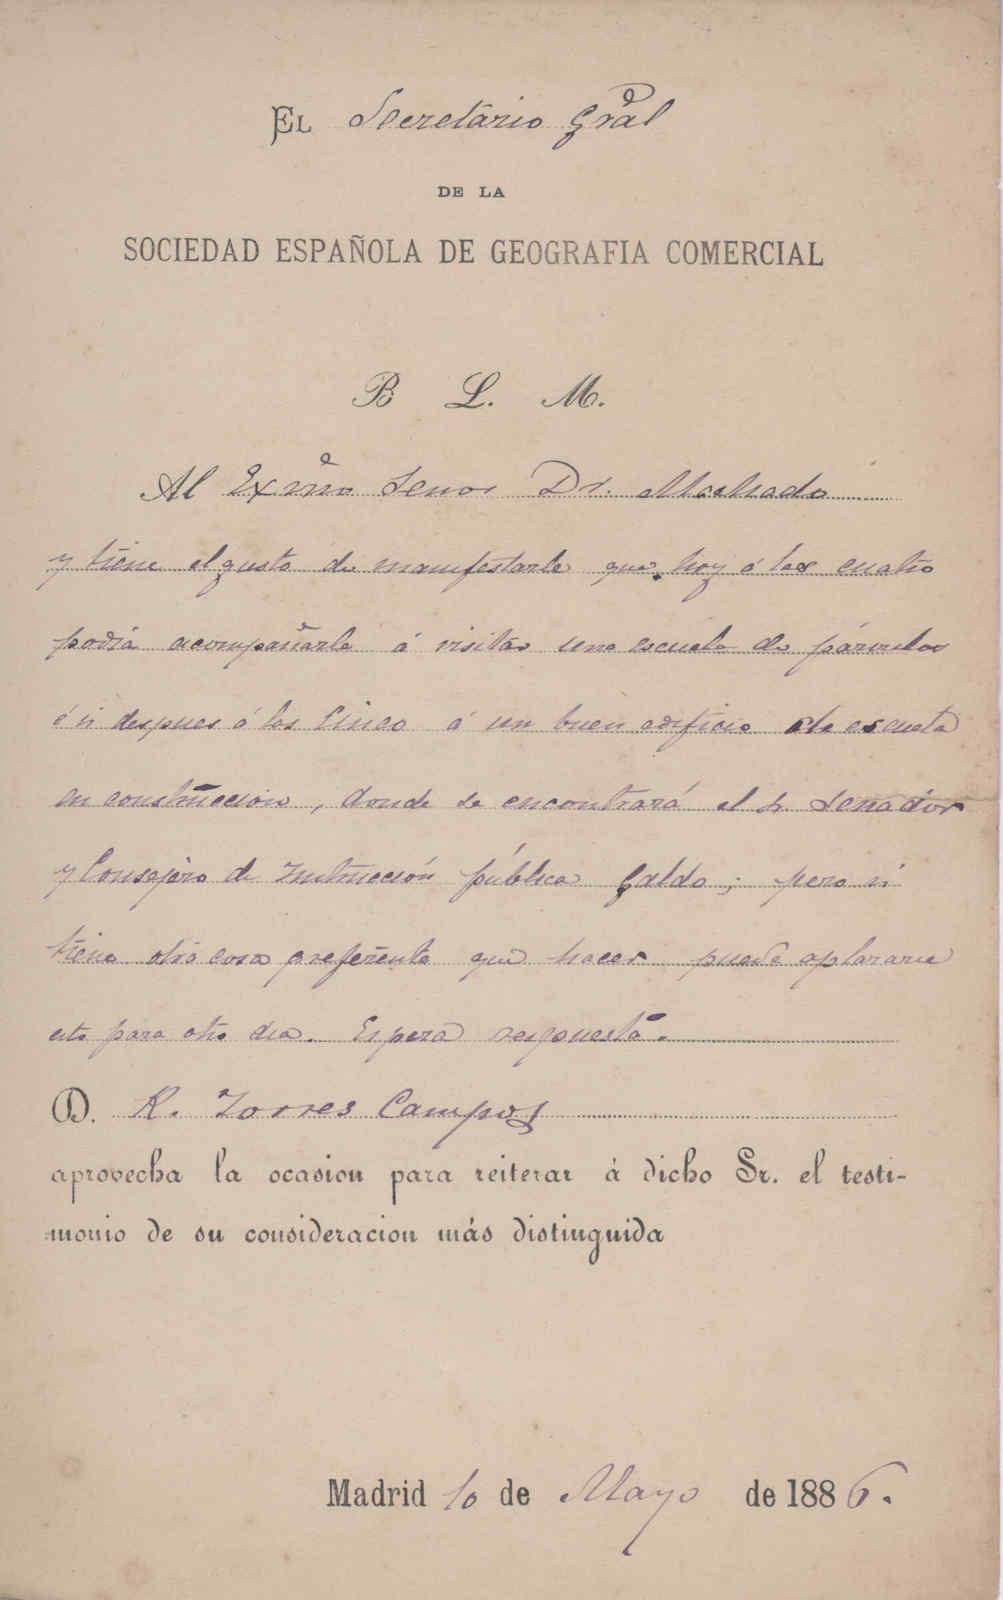 EL Secretario Gral
DE LA
SOCIEDAD ESPAÑOLA DE GEOGRAFIA COMERCIAL
B L. M.
Al Exmo Senor Dr. Machado
y tiene el gusto de manifestarle que hoy á las cuatro
podrá acompañarle á visitar una escuela de párvulos
é ir despues á las cinco á un buen edificio de escuela
en construccion, donde se encontrará el Sr Senador
y Consejero de Instrucción pública Galdo; pero si
tiene otra cosa preferente que hacer puede aplazarse
esto para otro dia. Espera respuesta.
D. R. Torres Campos
aprovecha la ocasion para reiterar á dicho Sr. el testi-
monio de su consideracion más distinguida
Madrid 10 de Mayo de 1886.